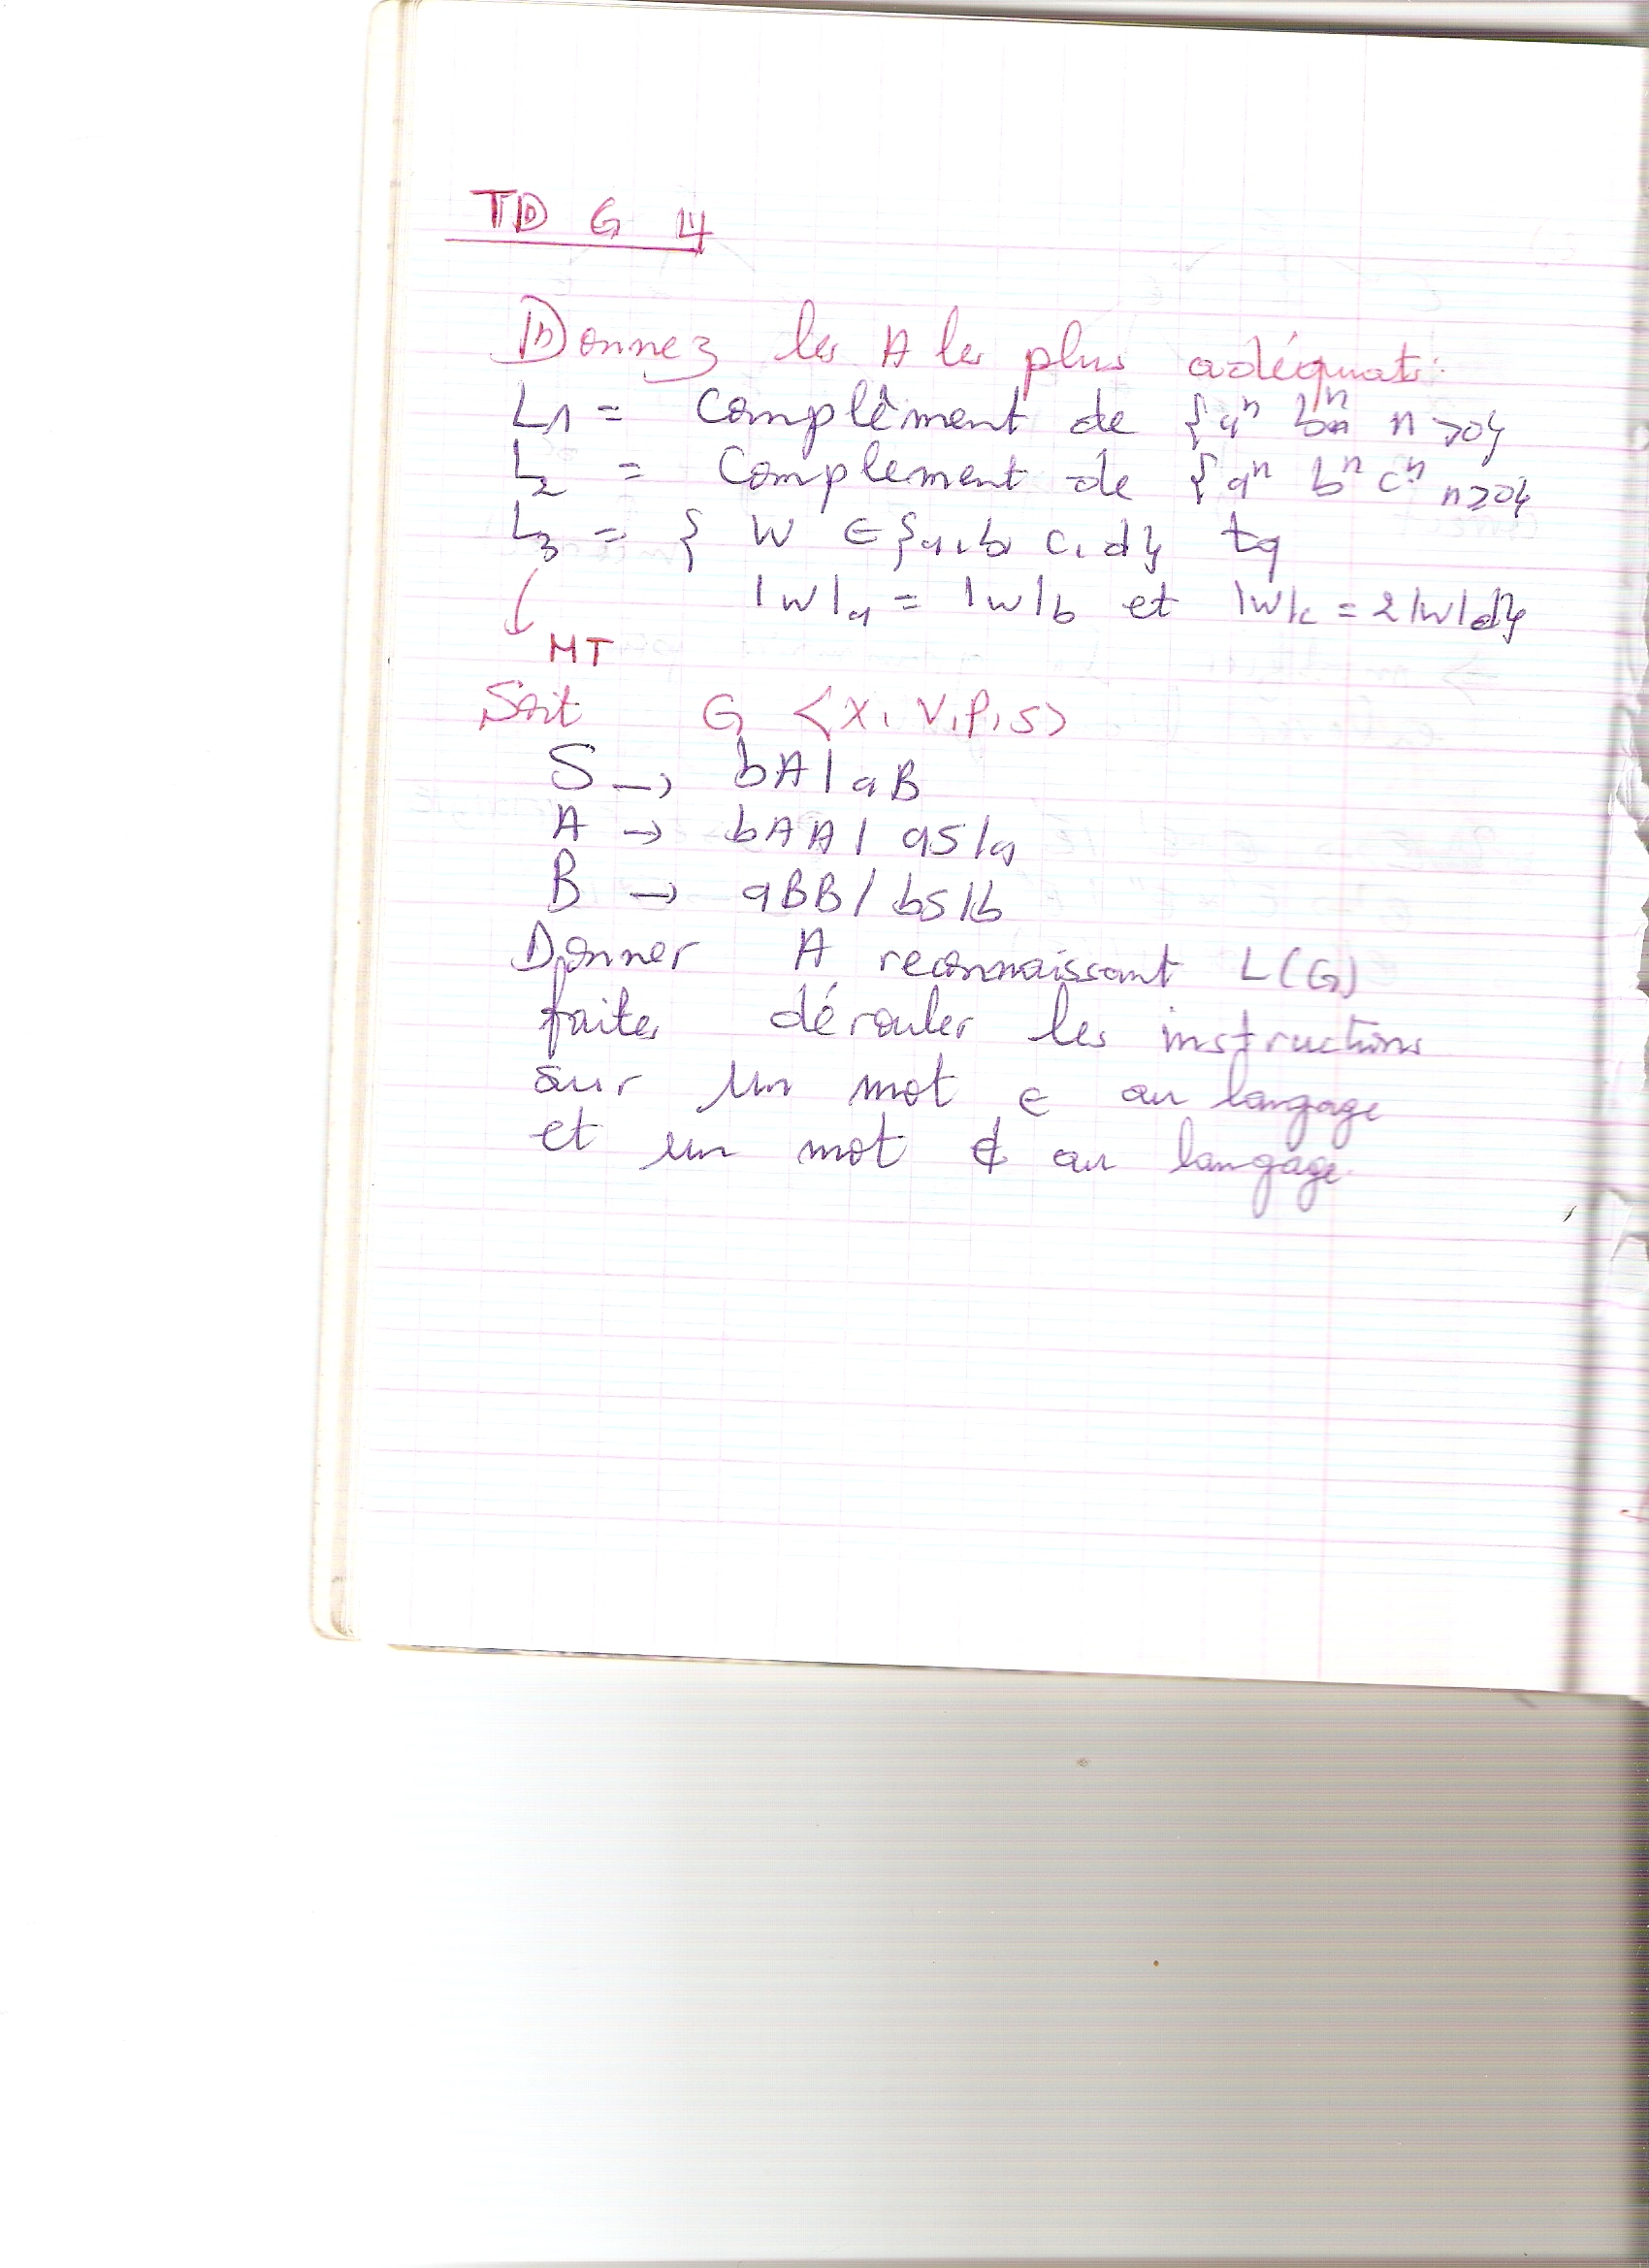 TD G 4
Donnez les A les plus adéquats:
L1 = Complêment de {aⁿ bⁿ n >0}
L2 = Complement de {aⁿ bⁿ cⁿ n≥0}
L3 = { W ∈ {a,b c, d} tq
|w|a = |w|b et |w|c = 2|w|d}
MT
Soit G <X, V, P, S>
S → bA | aB
A → bAA | aS | a
B → aBB | bS | b
Donner A reconnaissant L(G)
faites dérouler les instructions
sur un mot ∈ au langage
et un mot ∉ au langage.